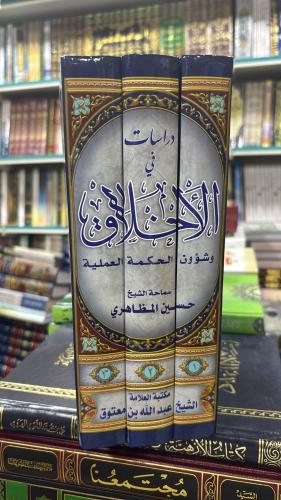 دراسات
في
الأخلاق
وشؤون الحكمة العملية
سماحة الشيخ
حسين المظاهري
١
٢
٣
مكتبة العلامة
الشيخ عبدالله بن معتوق
مجتمعنا